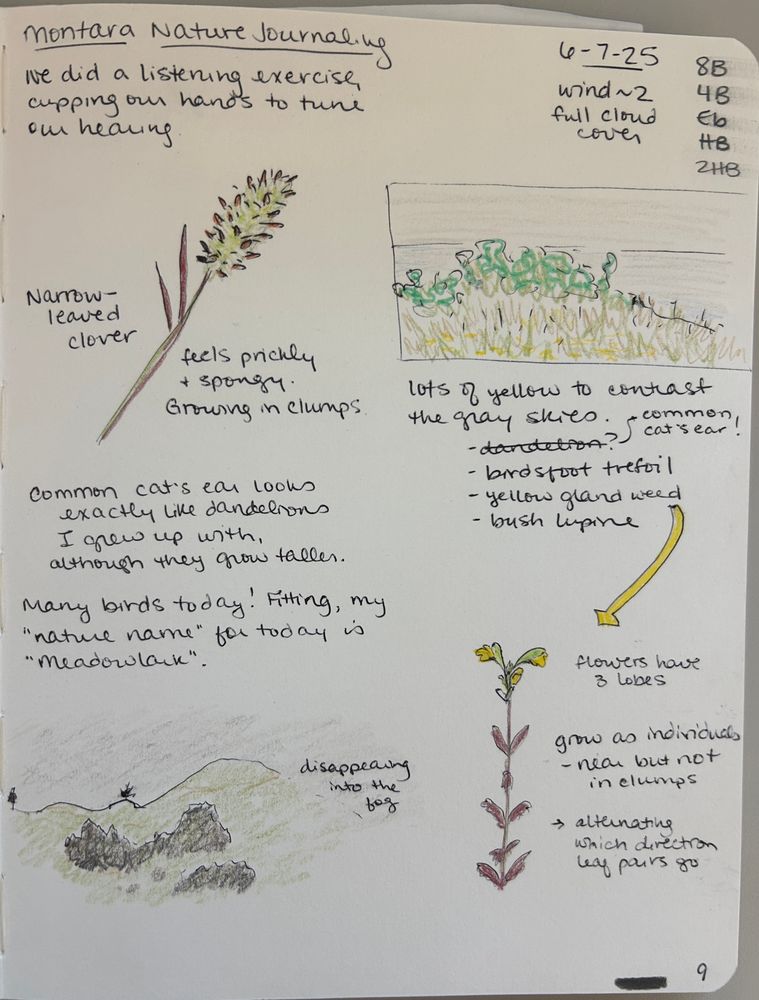 Montara Nature Journaling
We did a listening exercise,
cupping our hands to tune
our hearing.
6-7-25
wind ~2
full cloud
cover
8B
4B
Eb
HB
2HB
Narrow-
leaved
clover
feels prickly
+ spongy.
Growing in clumps.
lots of yellow to contrast
the gray skies.
- dandelion?
common
cat's ear!
- birdsfoot trefoil
- yellow gland weed
- bush lupine
Common cat's ear looks
exactly like dandelions
I grew up with,
although they grow taller.
Many birds today! Fitting, my
"nature name" for today is
"Meadowlark".
flowers have
3 lobes
grow as individuals
- near but not
in clumps
→ alternating
which direction
leaf pairs go
disappearing
into the
fog
9